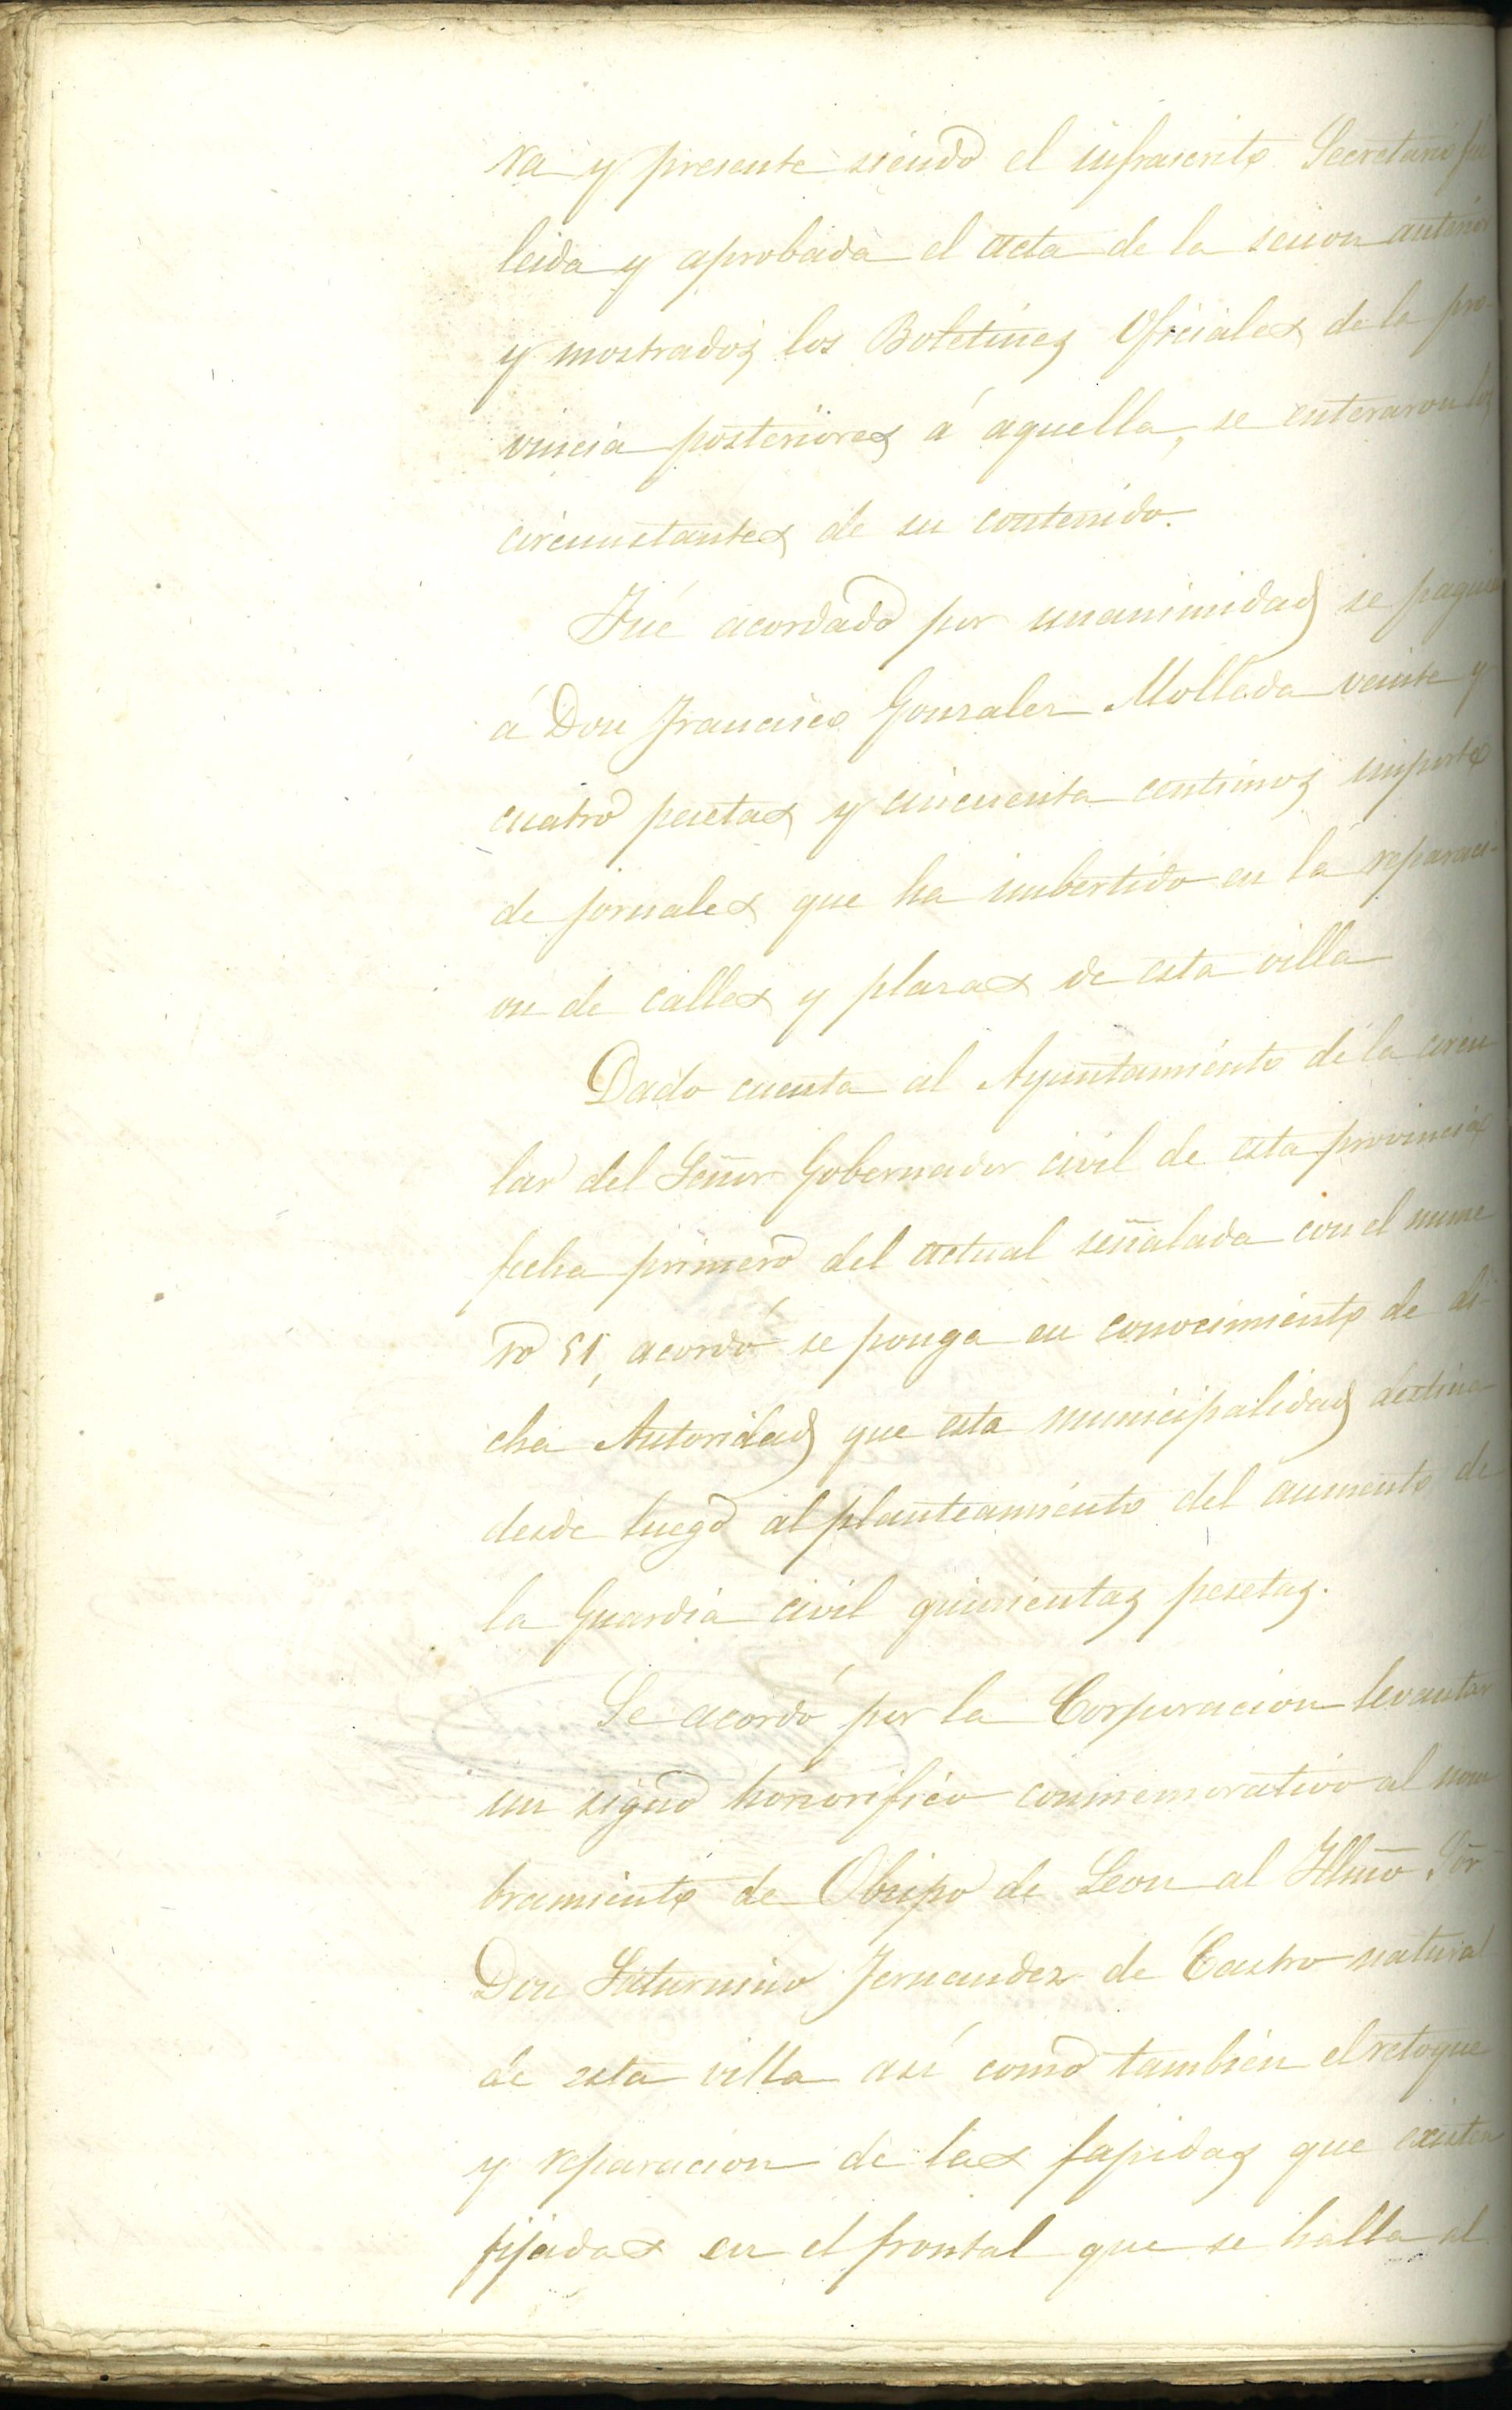 ra y presente siendo el infrascrito Secretario fué
leida y aprobada el acta de la sesion anterior
y mostrados los Boletines Oficiales de la pro-
vincia posteriores á aquella, se enteraron los
circunstantes de su contenido.
Fué acordado por unanimidad se paguen
á Don Francisco Gonzalez Mollada veinte y
cuatro pesetas y cincuenta centimos importe
de jornales que ha imbertido en la reparaci-
on de calles y plazas de esta villa
Dado cuenta al Ayuntamiento de la circu
lar del Señor Gobernador civil de esta provincia
fecha primero del actual señalada con el nume
ro 51, acordó se ponga en conocimiento de di-
cha Autoridad que esta municipalidad destina
desde luego al planteamiento del aumento de
la Guardia civil quinientas pesetas.
Se acordó por la Corporacion levantar
un signo honorifico conmemorativo al nom
bramiento de Obispo de Leon al Yllmo. Sor
Don Saturnino Fernandez de Castro natural
de esta villa así como tambien el retoque
y reparacion de las lapidas que existen
fijadas en el frontal que se halla al